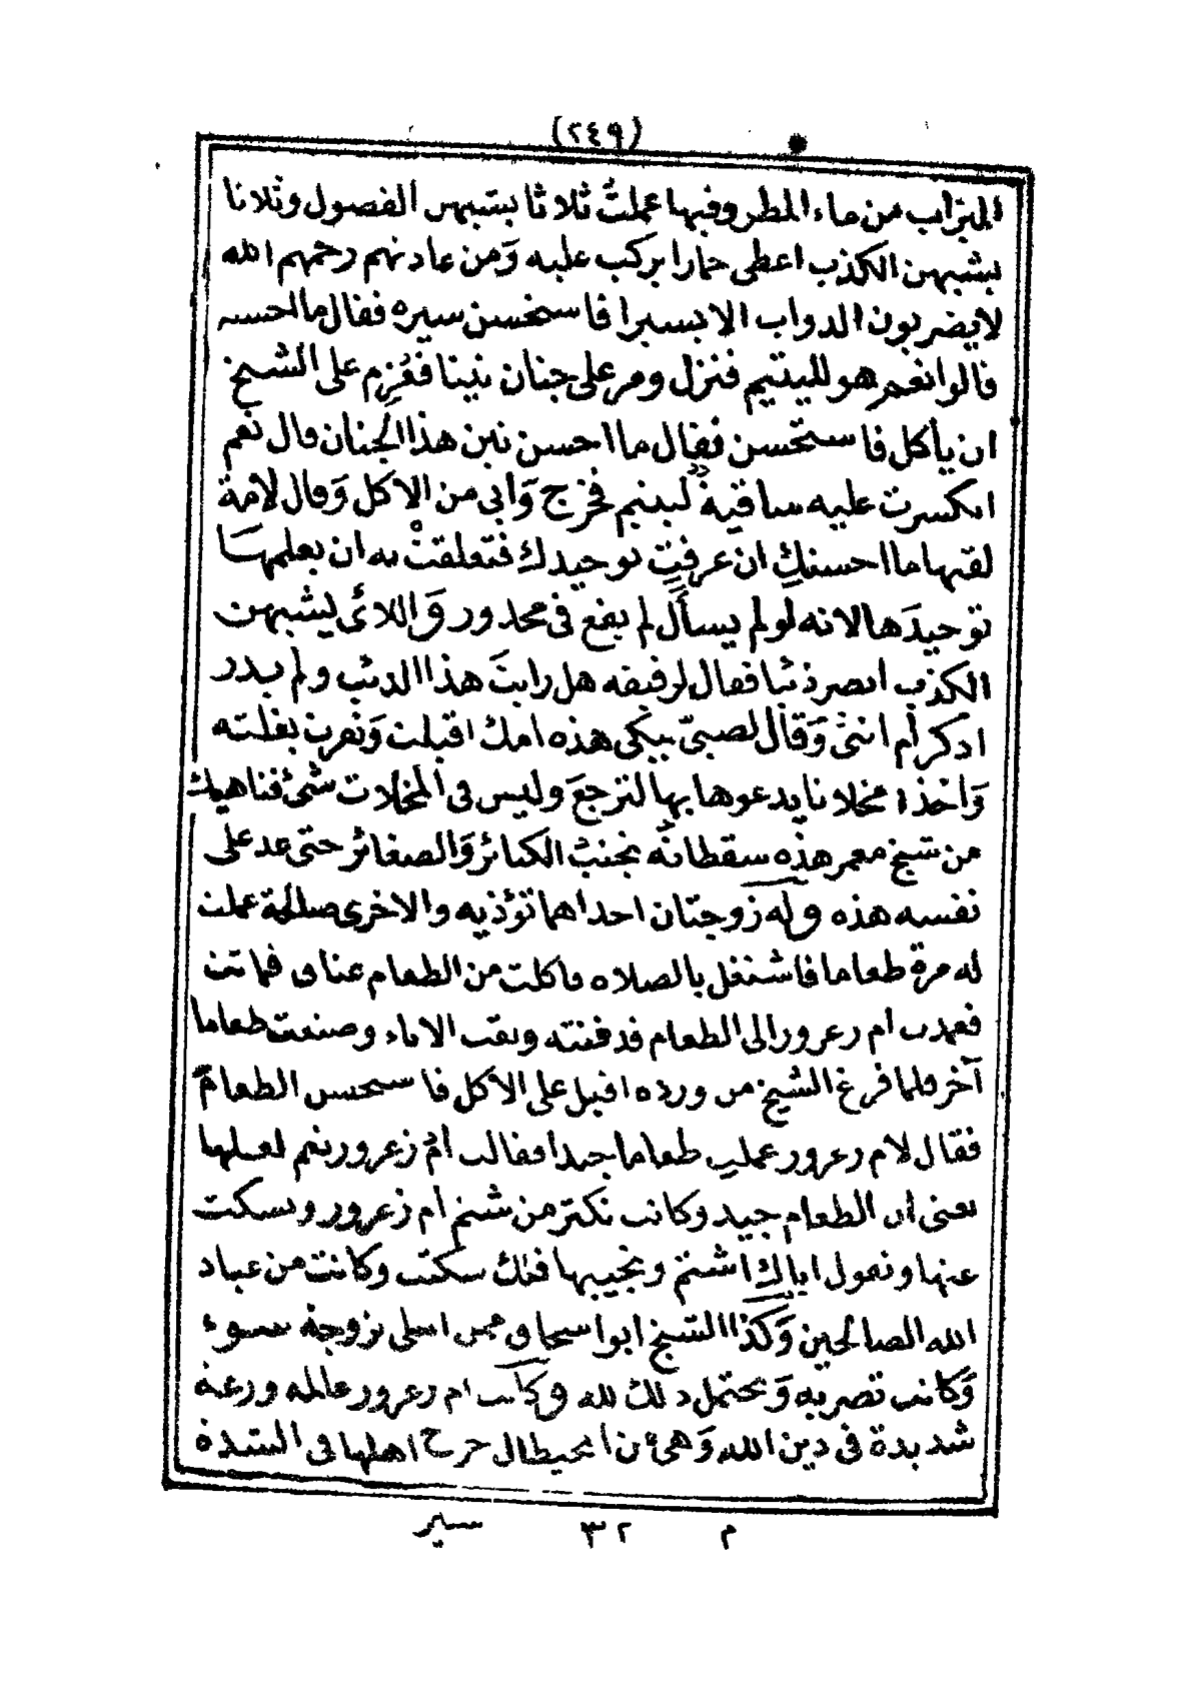 (٢٤٩)
الميزاب من ماء المطر وفيها عملتُ ثلاثا يشبهن الفضول وثلاثا
يشبهن الكذب اعطى حمارا يركب عليه وَمن عادتهم رحمهم الله
لا يضربون الدواب الا يسيرا فاستحسن سيره فقال ما احسنه
قالوا نعم هو لليتيم فنزل ومر على جنان تينا فعُزِم على الشيخ
ان يأكل فاستحسن فقال ما احسن تين هذا الجنان قال نعم
انكسرت عليه ساقية ليتيم فخرج وَابى من الاكل وَقال لامة
لقيها ما احسنكِ ان عرفتِ توحيدك فتعلقتْ به ان يعلمها
توحيدَها لانه لو لم يسأل لم يقع في محذور وَاللائي يشبهن
الكذب ابصر ذئبا فقال لرفيقه هل رايتَ هذا الذئب ولم يدر
اذكر أم انثى وَقال لصبيّ يبكي هذه امك اقبلت وَنفرت بغلته
وَاخذ مخلاتا يدعوها بها لترجعَ وليس في المخلات شئ فناهيك
من شيخ معمر هذه سقطاته تجنب الكبائر وَالصغائر حتى عد على
نفسه هذه وله زوجتان احداهما تؤذيه والاخرى صالحة عملت
له مرة طعاما فاشتغل بالصلاه فاكلت من الطعام عناق فماتت
فعمدت ام زعرور الى الطعام فدفنته ونقت الاناء وصنعت طعاما
آخر فلما فرغ الشيخ من ورده اقبل على الاكل فاستحسن الطعامَ
فقال لام زعرور عملتِ طعاما جيدا فقالت امُ زعرور نعم لعلها
يعنى ان الطعام جيد وكانت تكثر من شتم أم زعرور وتسكت
عنها وتقول اياكِ اشتم وتجيبها فعنك سكتت وكانت من عباد
الله الصالحين وَكذا الشيخ ابو اسحاق ممن ابتلى بزوجة سوء
وَكانت تضربه وَيحتمل ذلك لله وكانت ام زعرور عالمه ورعة
شديدة في دين الله وَهي ئن ابحيطال حرج اهلها في الشدة
م ٣٢ سير